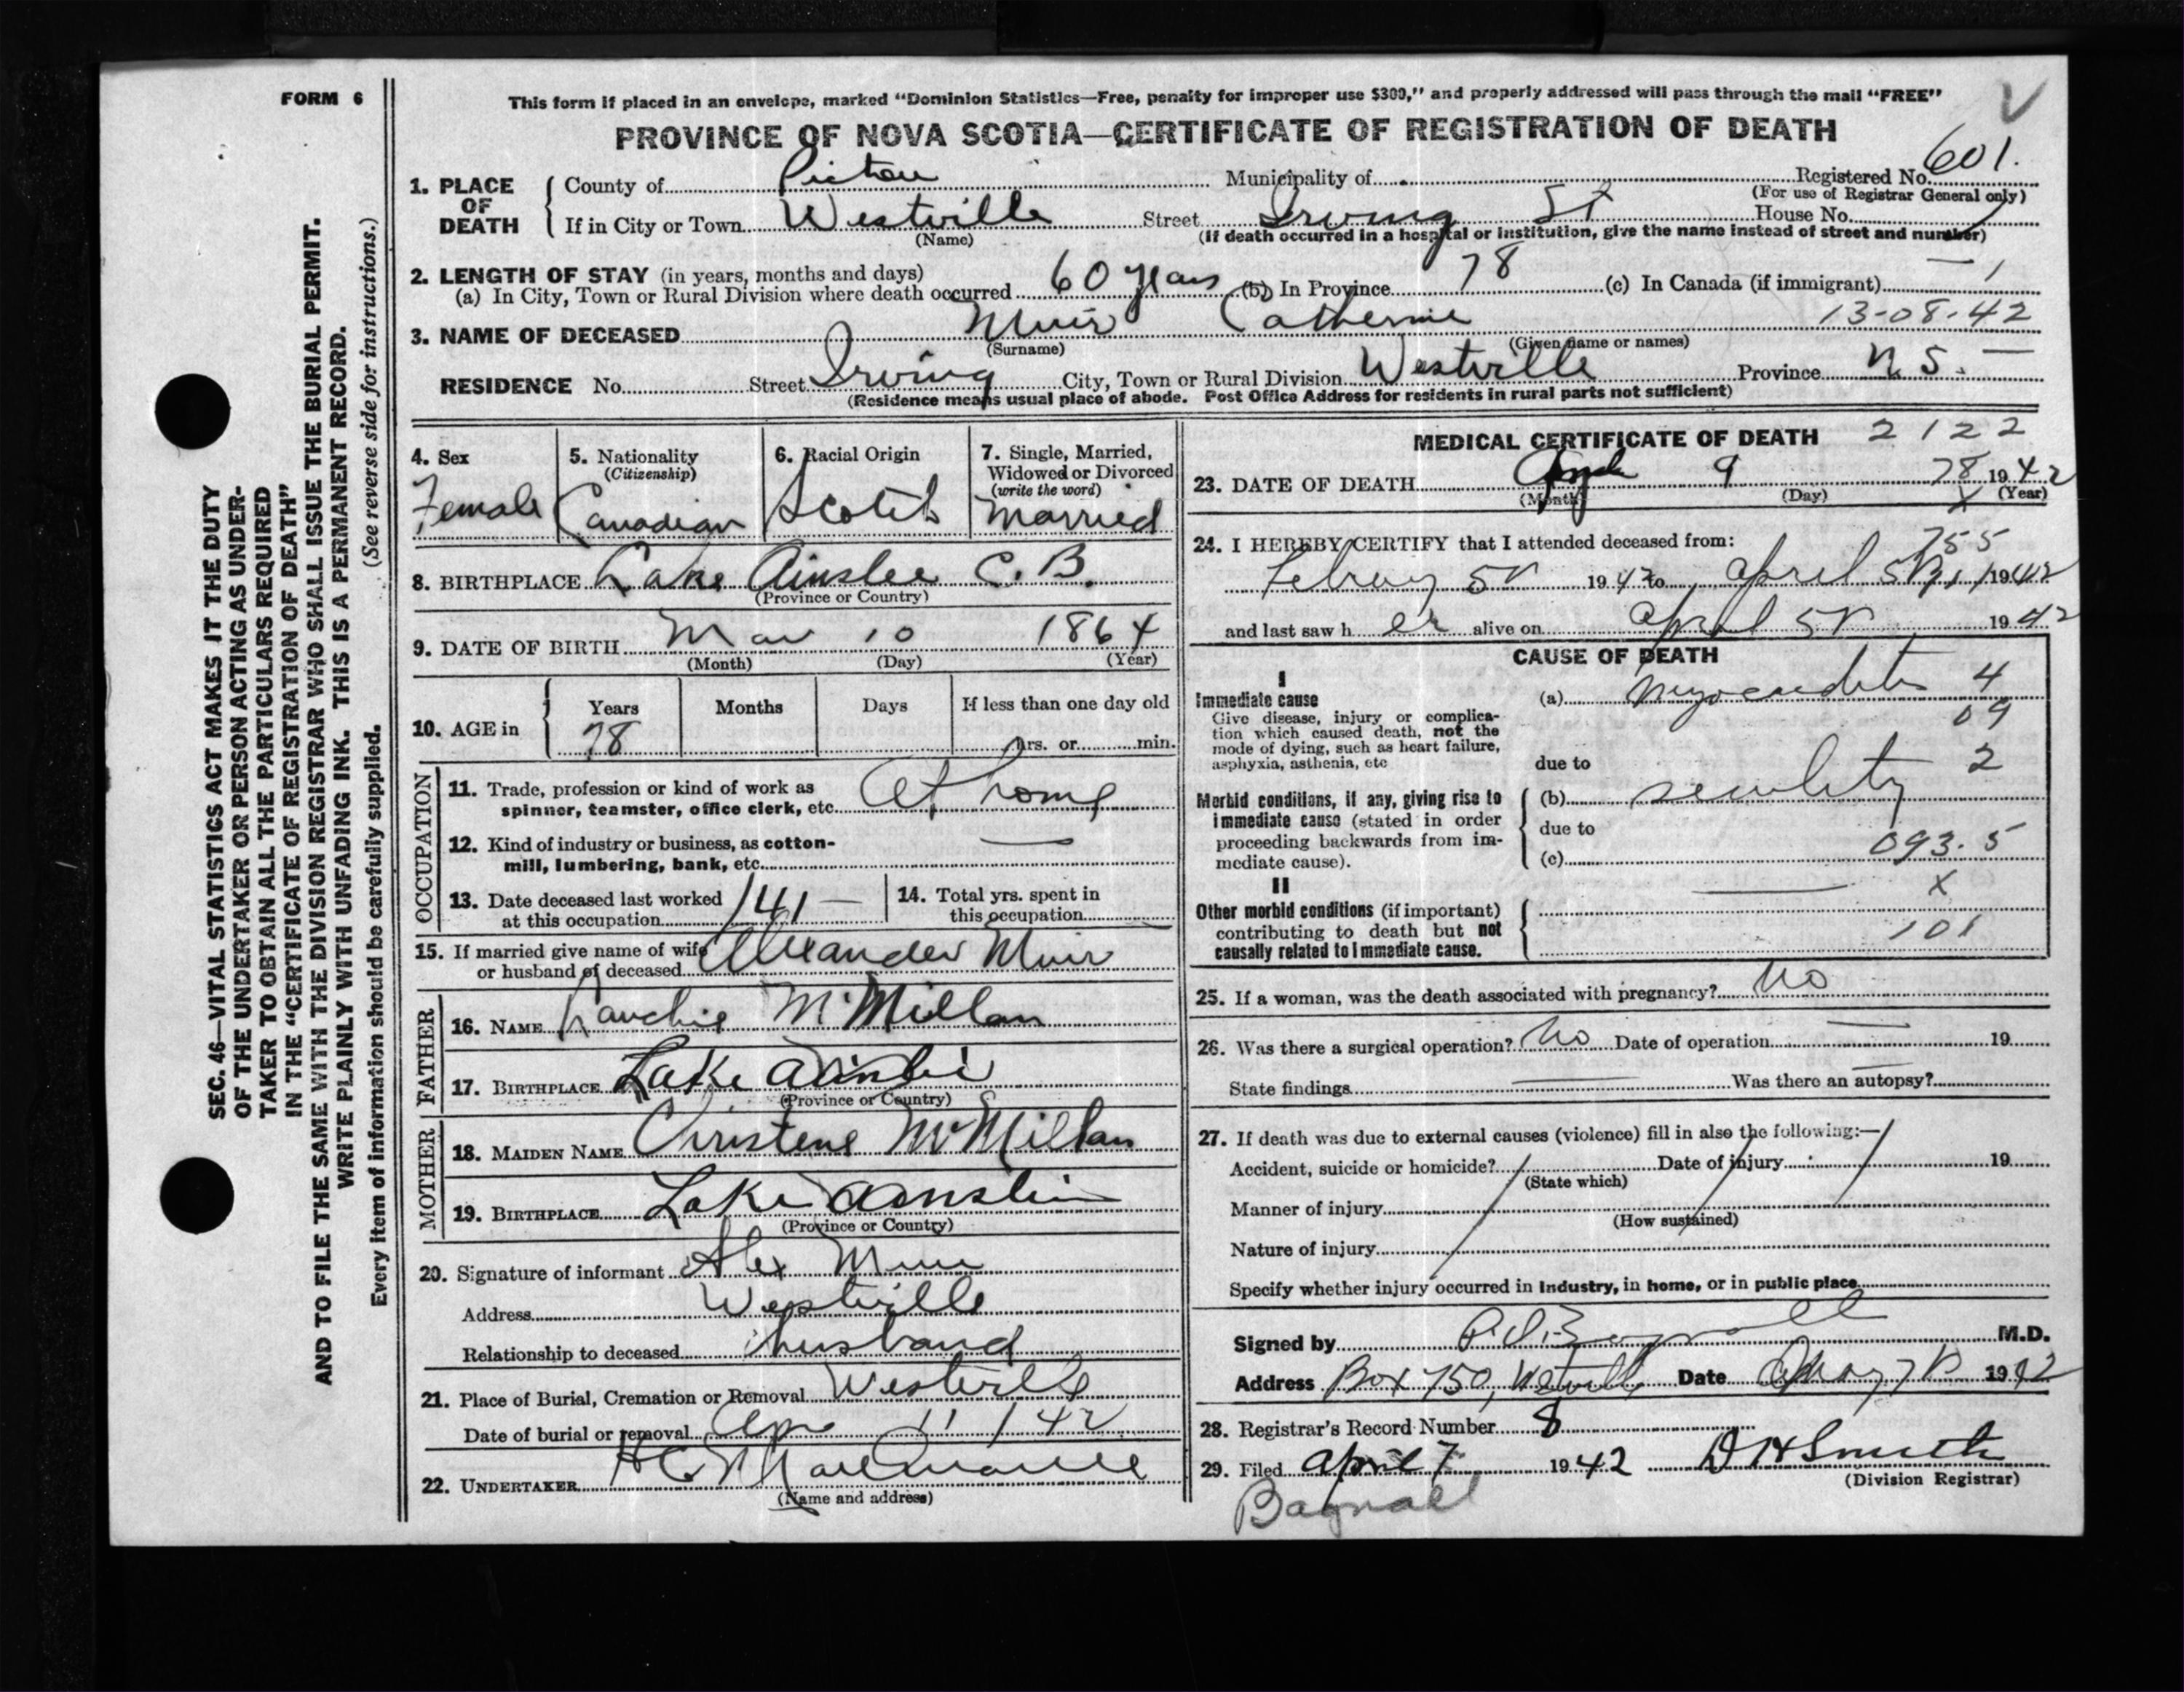 FORM 6
This form if placed in an envelope, marked "Dominion Statistics—Free, penalty for improper use $300," and properly addressed will pass through the mail "FREE"
PROVINCE OF NOVA SCOTIA—CERTIFICATE OF REGISTRATION OF DEATH
1. PLACE OF DEATH
County of Pictou Municipality of Registered No. 601.
(For use of Registrar General only)
If in City or Town Westville Street Irving St House No.
(Name) (If death occurred in a hospital or institution, give the name instead of street and number)
2. LENGTH OF STAY (in years, months and days)
(a) In City, Town or Rural Division where death occurred 60 years (b) In Province 78 (c) In Canada (if immigrant) — 1
3. NAME OF DECEASED Muir Catherine 13-08-42
(Surname) (Given name or names)
RESIDENCE No. Street Irving City, Town or Rural Division Westville Province N.S. —
(Residence means usual place of abode. Post Office Address for residents in rural parts not sufficient)
4. Sex
Female
5. Nationality
(Citizenship)
Canadian
6. Racial Origin
Scotch
7. Single, Married, Widowed or Divorced
(write the word)
Married
8. BIRTHPLACE Lake Ainslee C. B.
(Province or Country)
9. DATE OF BIRTH Mar 10 1864
(Month) (Day) (Year)
10. AGE in
Years Months Days If less than one day old
78 hrs. or min.
OCCUPATION
11. Trade, profession or kind of work as
spinner, teamster, office clerk, etc. At home
12. Kind of industry or business, as cotton-
mill, lumbering, bank, etc. —
13. Date deceased last worked
at this occupation 141 —
14. Total yrs. spent in
this occupation
15. If married give name of wife
or husband of deceased Alexander Muir
FATHER
16. NAME Lauchie McMillan
17. BIRTHPLACE Lake Ainslie
(Province or Country)
MOTHER
18. MAIDEN NAME Christene McMillan
19. BIRTHPLACE Lake Ainslie
(Province or Country)
20. Signature of informant Alex Muir
Address Westville
Relationship to deceased husband
21. Place of Burial, Cremation or Removal Westville
Date of burial or removal Apr 11 / 42
22. UNDERTAKER
(Name and address)
MEDICAL CERTIFICATE OF DEATH 2122
23. DATE OF DEATH 9 78 1942
(Month) (Day) X (Year)
24. I HEREBY CERTIFY that I attended deceased from:
755
1942 to April 1942
and last saw her alive on April 1942
CAUSE OF DEATH
I
Immediate cause
Give disease, injury or complica-
tion which caused death, not the
mode of dying, such as heart failure,
asphyxia, asthenia, etc
(a) Myocarditis 4
09
due to 2
Morbid conditions, if any, giving rise to
immediate cause (stated in order
proceeding backwards from im-
mediate cause).
(b) senility
due to
(c) 093.5
II
Other morbid conditions (if important)
contributing to death but not
causally related to immediate cause.
— X
101
25. If a woman, was the death associated with pregnancy? No
26. Was there a surgical operation? No Date of operation — 19
State findings — Was there an autopsy? —
27. If death was due to external causes (violence) fill in also the following:—
Accident, suicide or homicide? Date of injury 19
(State which)
Manner of injury
(How sustained)
Nature of injury
Specify whether injury occurred in industry, in home, or in public place
Signed by Bagnall M.D.
Address Box 750, Westville Date 1942
28. Registrar's Record Number 8
29. Filed April 7 1942 D H Smith
(Division Registrar)
Bagnall
SEC. 46—VITAL STATISTICS ACT MAKES IT THE DUTY
OF THE UNDERTAKER OR PERSON ACTING AS UNDER-
TAKER TO OBTAIN ALL THE PARTICULARS REQUIRED
IN THE "CERTIFICATE OF REGISTRATION OF DEATH"
AND TO FILE THE SAME WITH THE DIVISION REGISTRAR WHO SHALL ISSUE THE BURIAL PERMIT.
WRITE PLAINLY WITH UNFADING INK. THIS IS A PERMANENT RECORD.
(See reverse side for instructions.)
Every item of information should be carefully supplied.